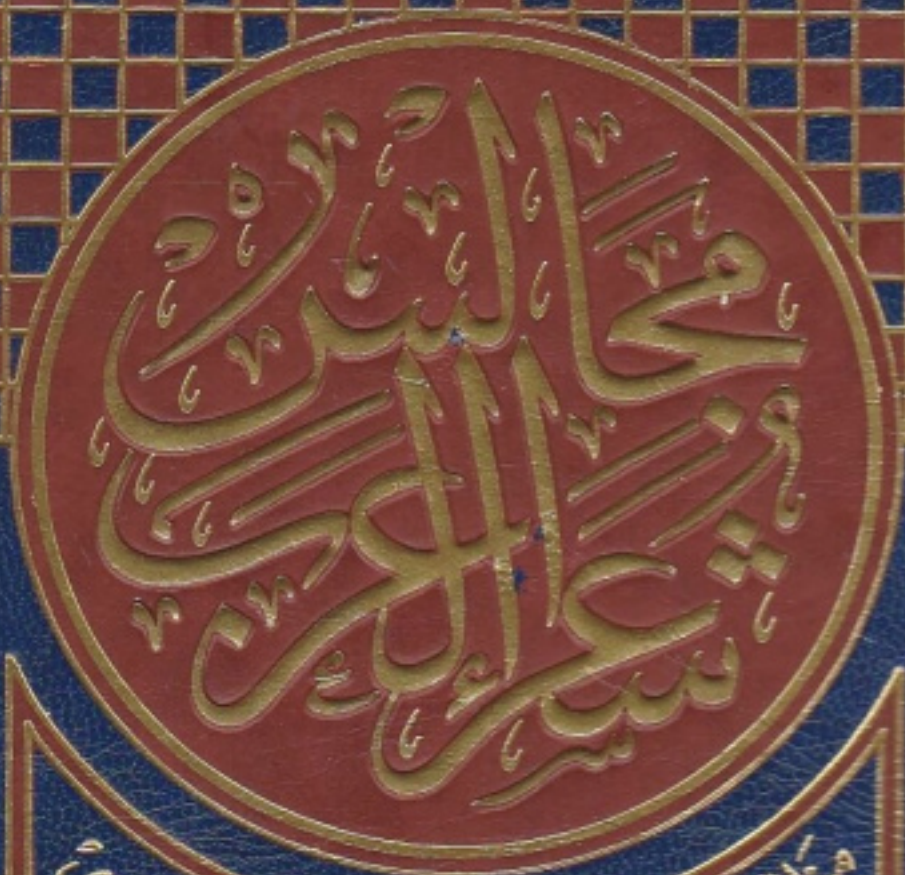 مجالس
شعراء العرب